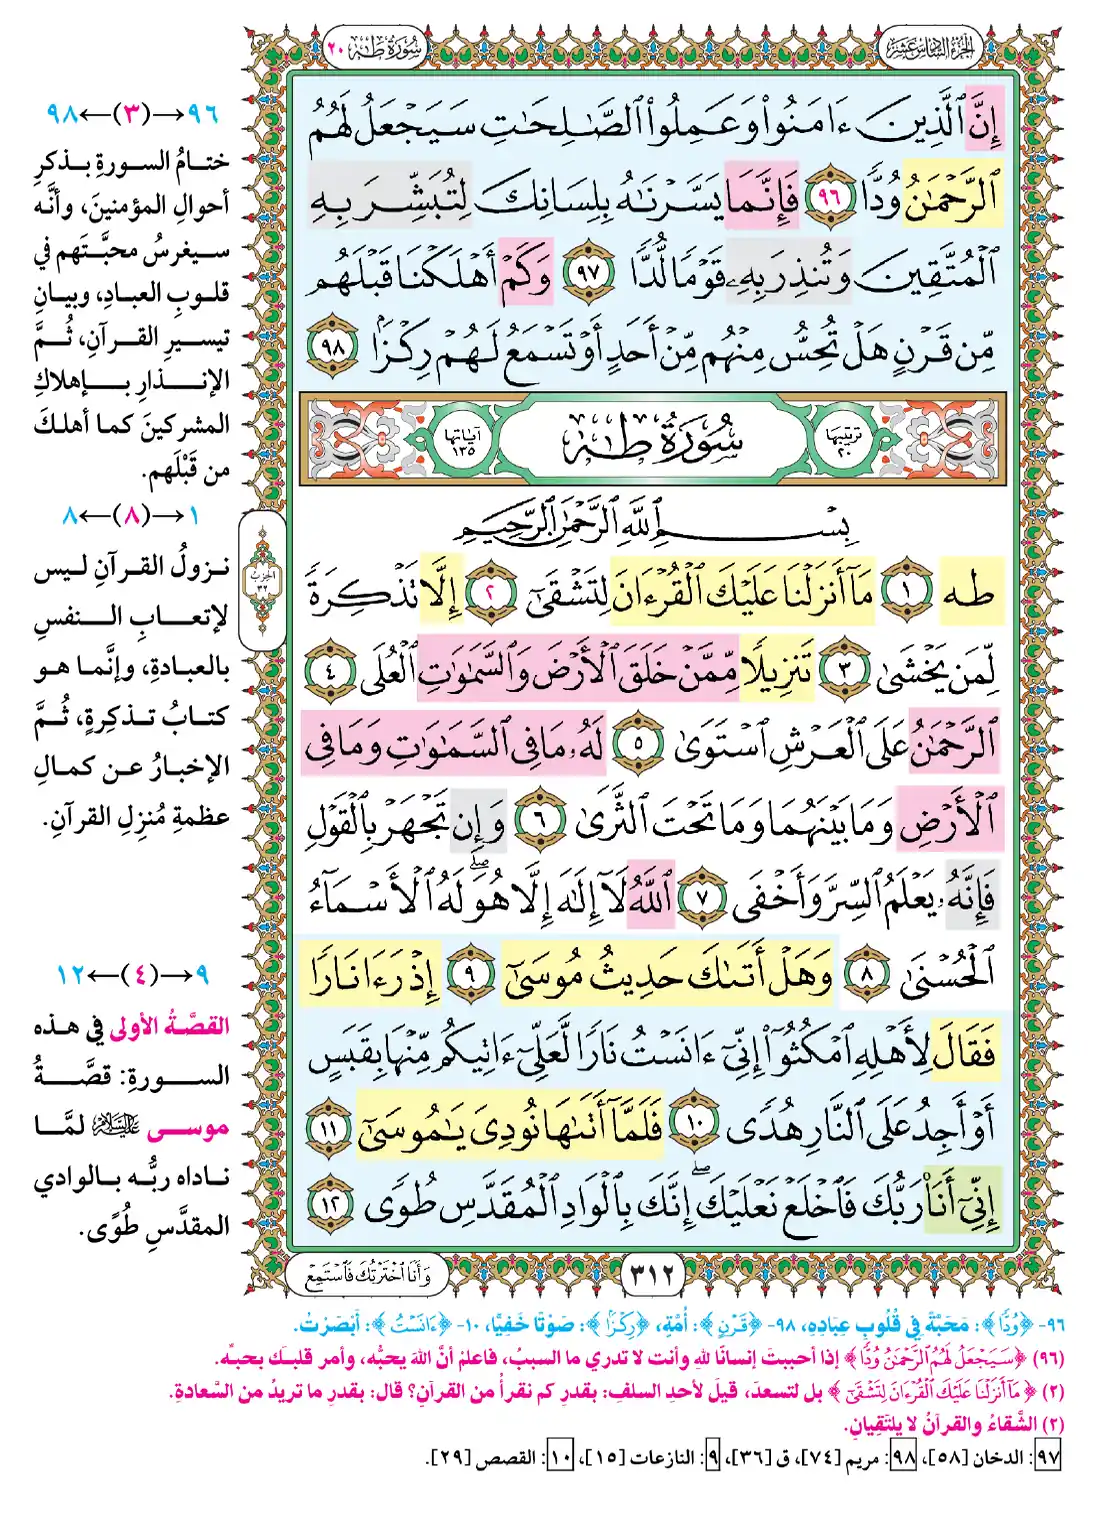 الجزء السادس عشر
سورة طه ٢٠
إِنَّ ٱلَّذِينَ ءَامَنُوا۟ وَعَمِلُوا۟ ٱلصَّـٰلِحَـٰتِ سَيَجْعَلُ لَهُمُ
ٱلرَّحْمَـٰنُ وُدًّا ٩٦ فَإِنَّمَا يَسَّرْنَـٰهُ بِلِسَانِكَ لِتُبَشِّرَ بِهِ
ٱلْمُتَّقِينَ وَتُنذِرَ بِهِۦ قَوْمًا لُّدًّا ٩٧ وَكَمْ أَهْلَكْنَا قَبْلَهُم
مِّن قَرْنٍ هَلْ تُحِسُّ مِنْهُم مِّنْ أَحَدٍ أَوْ تَسْمَعُ لَهُمْ رِكْزًۢا ٩٨
ترتيبها ٢٠
سُورَةُ طه
آياتها ١٣٥
بِسْمِ ٱللَّهِ ٱلرَّحْمَـٰنِ ٱلرَّحِيمِ
طه ١ مَآ أَنزَلْنَا عَلَيْكَ ٱلْقُرْءَانَ لِتَشْقَىٰٓ ٢ إِلَّا تَذْكِرَةً
لِّمَن يَخْشَىٰ ٣ تَنزِيلًا مِّمَّنْ خَلَقَ ٱلْأَرْضَ وَٱلسَّمَـٰوَٰتِ ٱلْعُلَى ٤
ٱلرَّحْمَـٰنُ عَلَى ٱلْعَرْشِ ٱسْتَوَىٰ ٥ لَهُۥ مَا فِى ٱلسَّمَـٰوَٰتِ وَمَا فِى
ٱلْأَرْضِ وَمَا بَيْنَهُمَا وَمَا تَحْتَ ٱلثَّرَىٰ ٦ وَإِن تَجْهَرْ بِٱلْقَوْلِ
فَإِنَّهُۥ يَعْلَمُ ٱلسِّرَّ وَأَخْفَى ٧ ٱللَّهُ لَآ إِلَـٰهَ إِلَّا هُوَ ۖ لَهُ ٱلْأَسْمَآءُ
ٱلْحُسْنَىٰ ٨ وَهَلْ أَتَىٰكَ حَدِيثُ مُوسَىٰٓ ٩ إِذْ رَءَا نَارًا
فَقَالَ لِأَهْلِهِ ٱمْكُثُوٓا۟ إِنِّىٓ ءَانَسْتُ نَارًا لَّعَلِّىٓ ءَاتِيكُم مِّنْهَا بِقَبَسٍ
أَوْ أَجِدُ عَلَى ٱلنَّارِ هُدًى ١٠ فَلَمَّآ أَتَىٰهَا نُودِىَ يَـٰمُوسَىٰٓ ١١
إِنِّىٓ أَنَا۠ رَبُّكَ فَٱخْلَعْ نَعْلَيْكَ ۖ إِنَّكَ بِٱلْوَادِ ٱلْمُقَدَّسِ طُوًى ١٢
٣١٢
وَأَنَا ٱخْتَرْتُكَ فَٱسْتَمِعْ
٩٦→(٣)←٩٨
ختامُ السورةِ بذكرِ
أحوالِ المؤمنينَ، وأنَّه
سيغرسُ محبَّتَهم في
قلوبِ العبادِ، وبيانِ
تيسيرِ القرآنِ، ثُمَّ
الإنذارِ بإهلاكِ
المشركينَ كما أهلكَ
من قَبْلَهم.
١→(٨)←٨
نزولُ القرآنِ ليس
لإتعابِ النفسِ
بالعبادةِ، وإنَّما هو
كتابُ تذكرةٍ، ثُمَّ
الإخبارُ عن كمالِ
عظمةِ مُنزِلِ القرآنِ.
الحزب ٣٢
٩→(٤)←١٢
القصَّةُ الأولى في هذه
السورةِ: قصَّةُ
موسى عليه السلام لمَّا
ناداه ربُّه بالوادي
المقدَّسِ طُوًى.
٩٦- ﴿وُدًّا﴾: مَحَبَّةً فِي قُلُوبِ عِبَادِهِ، ٩٨- ﴿قَرْنٍ﴾: أُمَّةٍ، ﴿رِكْزًۢا﴾: صَوْتًا خَفِيًّا، ١٠- ﴿ءَانَسْتُ﴾: أَبْصَرْتُ.
(٩٦) ﴿سَيَجْعَلُ لَهُمُ ٱلرَّحْمَـٰنُ وُدًّا﴾ إذا أحببتَ إنسانًا للهِ وأنت لا تدري ما السببُ، فاعلمْ أنَّ اللهَ يحبُّه، وأمر قلبـك بحبـِّه.
(٢) ﴿مَآ أَنزَلْنَا عَلَيْكَ ٱلْقُرْءَانَ لِتَشْقَىٰٓ﴾ بل لتسعدَ، قيلَ لأحدِ السلفِ: بقدرِ كم نقرأُ من القرآنِ؟ قال: بقدرِ ما تريدُ من السَّعادةِ.
(٢) الشَّقاءُ والقرآنُ لا يلتَقِيانِ.
٩٧: الدخان [٥٨]، ٩٨: مريم [٧٤]، ق [٣٦]، ٩: النازعات [١٥]، ١٠: القصص [٢٩].